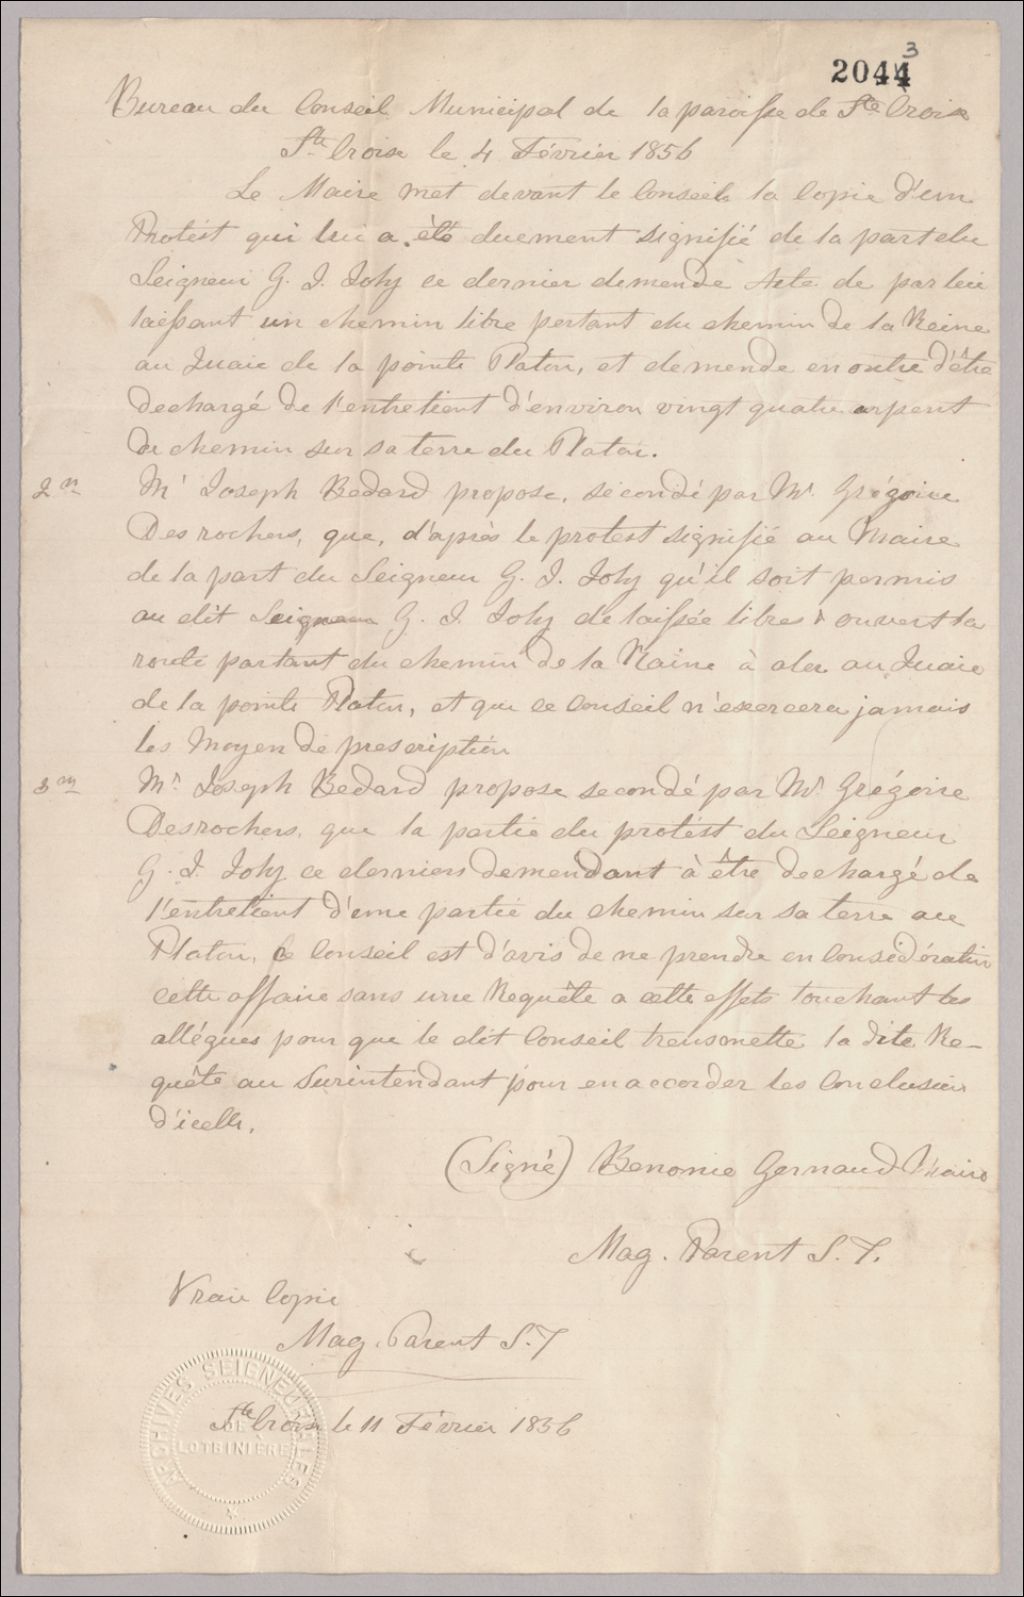 20443
Bureau du Conseil Municipal de la paroisse de Ste Croix
Ste Croix le 4 Février 1856
Le Maire met devant le Conseil la Copie d'un
Protest qui lui a été duement signifié de la part du
Seigneur G. J. Joly ce dernier demende Acte de par lui
laissant un chemin libre partant du chemin de la Reine
au Quaie de la pointe Platon, et demende en outre d'être
dechargé de l'entretient d'environ vingt quatre arpent
de chemin sur sa terre du Platon.
2n Mr Joseph Bedard propose, secondé par Mr Grégoire
Desrochers, que, d'après le protest signifié au Maire
de la part du Seigneur G. J. Joly qu'il soit permis
au dit Seigneur G. J. Joly de laissée libre & ouvert la
route partant du chemin de la Raine à aler au Quaie
de la pointe Platon, et que ce Conseil n'exercera jamais
les Moyen de prescription
3m Mr Joseph Bedard propose secondé par Mr Grégoire
Desrochers, que la partie du protést du Seigneur
G. J. Joly ce derniers demendant à être dechargé de
l'entretient d'une partie du chemin sur sa terre au
Platon, Ce Conseil est d'avis de ne prendre en Considération
cette affaire sans une Requête a cette effets touchant les
allégues pour que le dit Conseil trensmette la dite Re-
quête au Surintendant pour en accorder les Conclusion
d'icelle.
(Signé) Benonie Gernaud Maire
Mag. Parent S. T.
Vraie Copie
Mag. Parent S. T
Ste Croix le 11 Février 1856
ARCHIVES SEIGNEURIALES
DE
LOTBINIÈRE